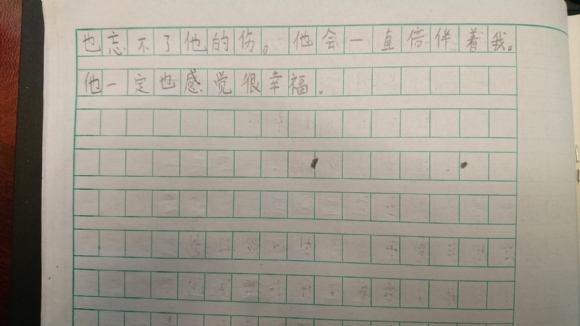 也忘不了他的伤。他会一直倍伴着我。
他一定也感觉很幸福.